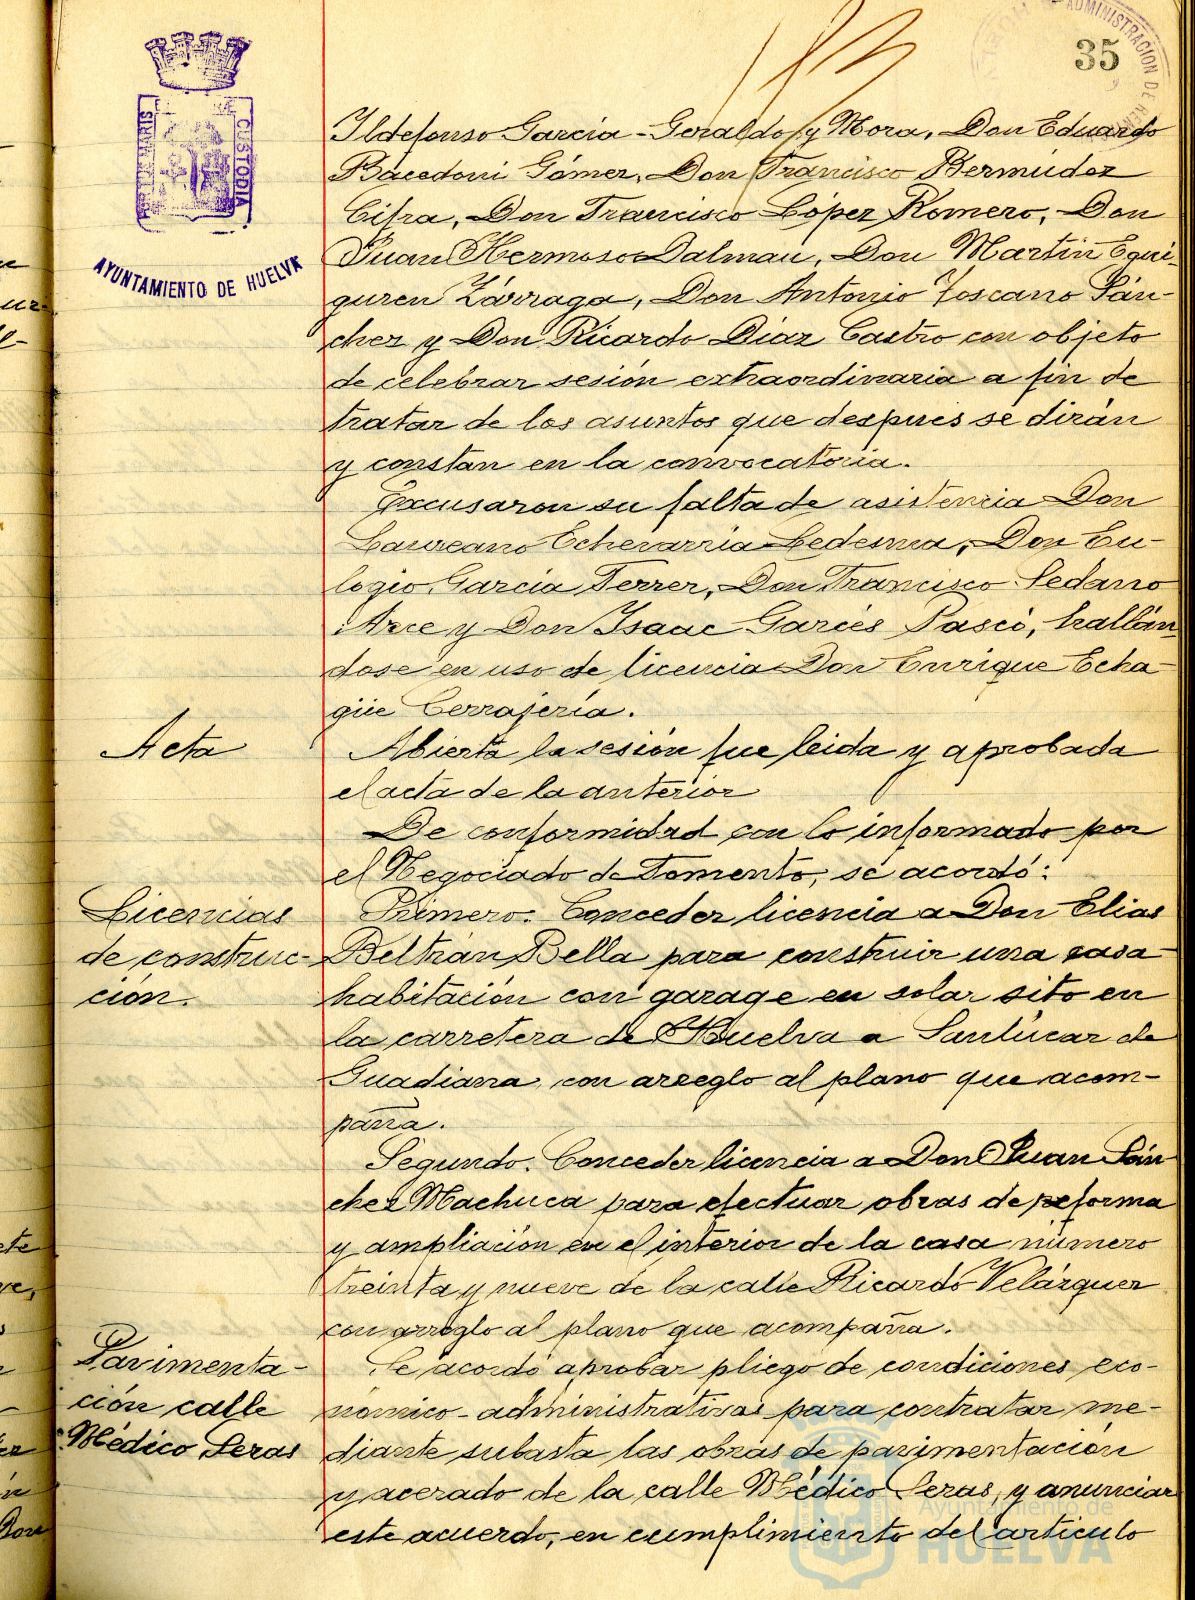 35
PORTUS MARIS
CUSTODIA
AYUNTAMIENTO DE HUELVA
ADMINISTRACION DE
Ildefonso García-Geraldo y Mora, Don Eduardo
Bacedoni Gómez, Don Francisco Bermúdez
Cifra, Don Francisco López Romero, Don
Juan Hermoso Dalmau, Don Martín Egui-
guren Zárraga, Don Antonio Toscano Sán-
chez y Don Ricardo Díaz Castro con objeto
de celebrar sesión extraordinaria a fin de
tratar de los asuntos que después se dirán
y constan en la convocatoria.
Excusaron su falta de asistencia Don
Laureano Echevarría Ledesma, Don Eu-
logio García Ferrer, Don Francisco Sedano
Arce y Don Isaac Garcés Pascó, hallán
dose en uso de licencia Don Enrique Echa-
güe Cerrajería.
Acta
Abierta la sesión fue leida y aprobada
el acta de la anterior
De conformidad con lo informado por
el Negociado de Fomento, se acordó:
Licencias
de construc-
ción.
Primero. Conceder licencia a Don Elias
Beltrán Bella para construir una casa
habitación con garage en solar sito en
la carretera de Huelva a Sanlúcar de
Guadiana con arreglo al plano que acom-
paña.
Segundo. Conceder licencia a Don Juan Sán
chez Machuca para efectuar obras de reforma
y ampliación en el interior de la casa número
treinta y nueve de la calle Ricardo Velázquez
con arreglo al plano que acompaña.
Pavimenta-
ción calle
Médico Seras
Se acordó aprobar pliego de condiciones eco-
nómico-administrativas para contratar me-
diante subasta las obras de pavimentación
y acerado de la calle Médico Seras, y anunciar
este acuerdo, en cumplimiento del artículo
Ayuntamiento de
HUELVA